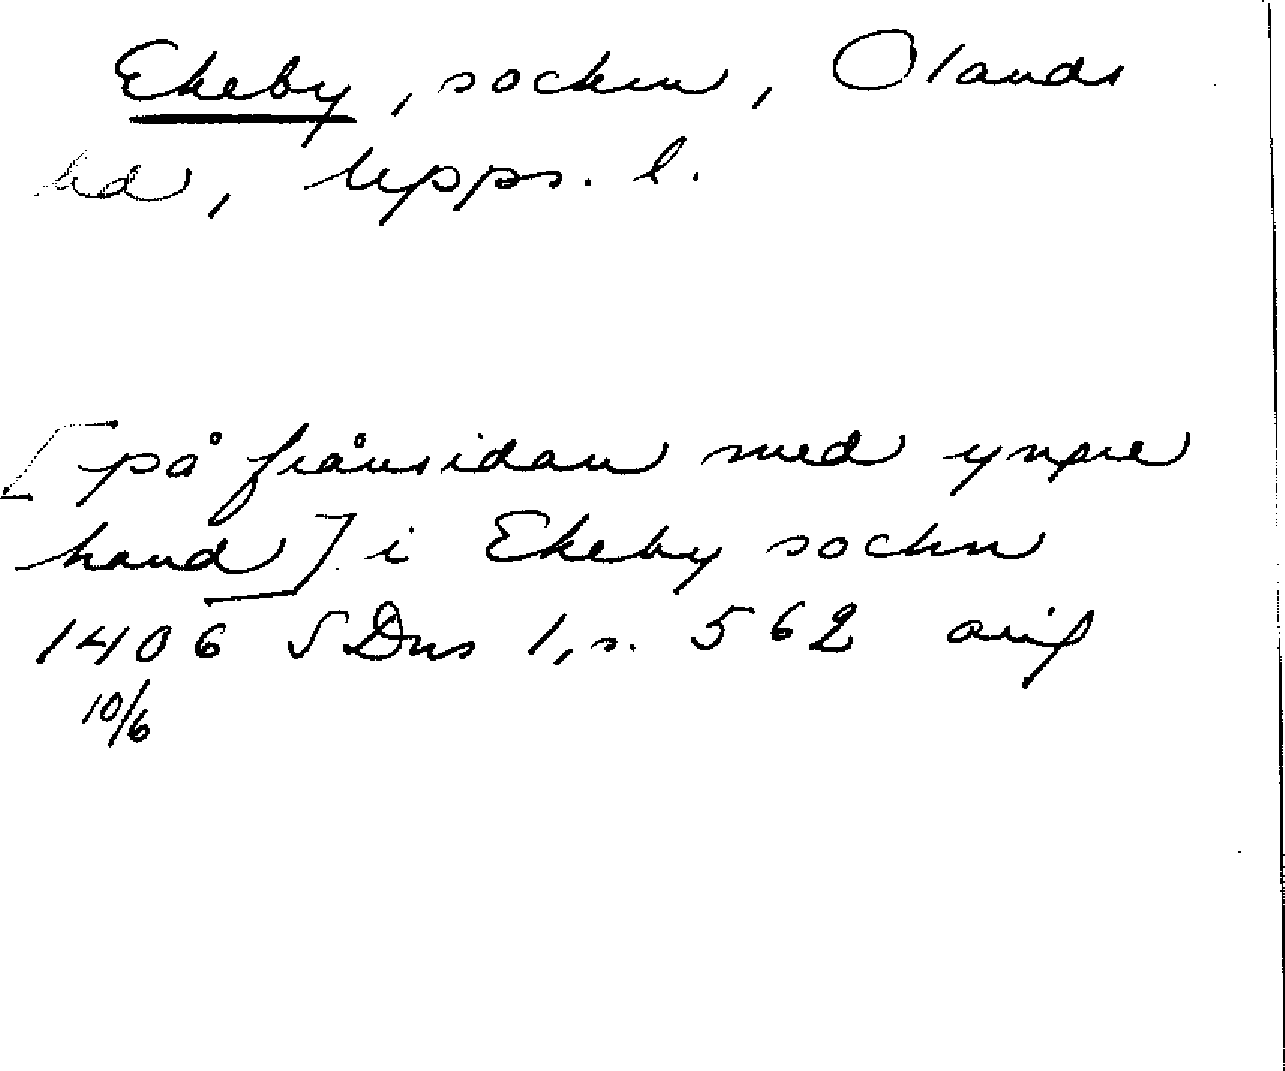 Ekeby, socken, Olands
hd, Upps. l.
[på frånsidan med yngre
hand] i Ekeby sockn
1406 SDns 1, s. 562 orig
10/6